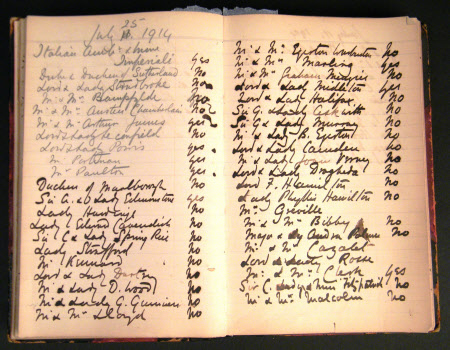 July 25 1914
Italian Amb: & 
Imperiali Yes
Duke & Duchess of Sutherland No
Lord & Lady Stradbroke No
Mr & Mrs Bampfylde No
Mr & Mrs Austen Chamberlain No
Mr & Mrs Arthur James Yes
Lord & Lady 
Lord & Lady Yes
Mr Portman Yes
Mr Paulton Yes
Duchess of Marlborough No
Sir A. & Lady Edmonstone Yes
Lady No
Lady Edward Cavendish No
Sir C & Lady Spring Rice No
Lady No
Mr Kinnaird No
Lord & Lady No
Mr & Lady D. Wood No
Mr & Lady G. Guinness No
Mr & Mrs Lloyd No
Mr & Mrs Egerton No
Mr & Mrs Marling Yes
Mr & Mrs Graham Menzies No
Lord & Lady Middleton Yes
Lord & Lady Halifax No
Sir G. & Lady Askwith No
Sir G & Lady Murray No
Mr & Lady B. Egerton No
Lord & Lady Camden No
Mr & Lady Joan Verney No
Lord & Lady Drogheda No
Lord F. Hamilton No
Lady Phyllis Hamilton No
Mrs Greville
Mr & Mrs Bibby No
Major & Lady No
Mr & Mrs Cazalet
Lord & Lady Rosse
Mr & Mrs Clark Yes
Sir C. Lady & Miss Fitzpatrick No
Mr & Mrs Malcolm No